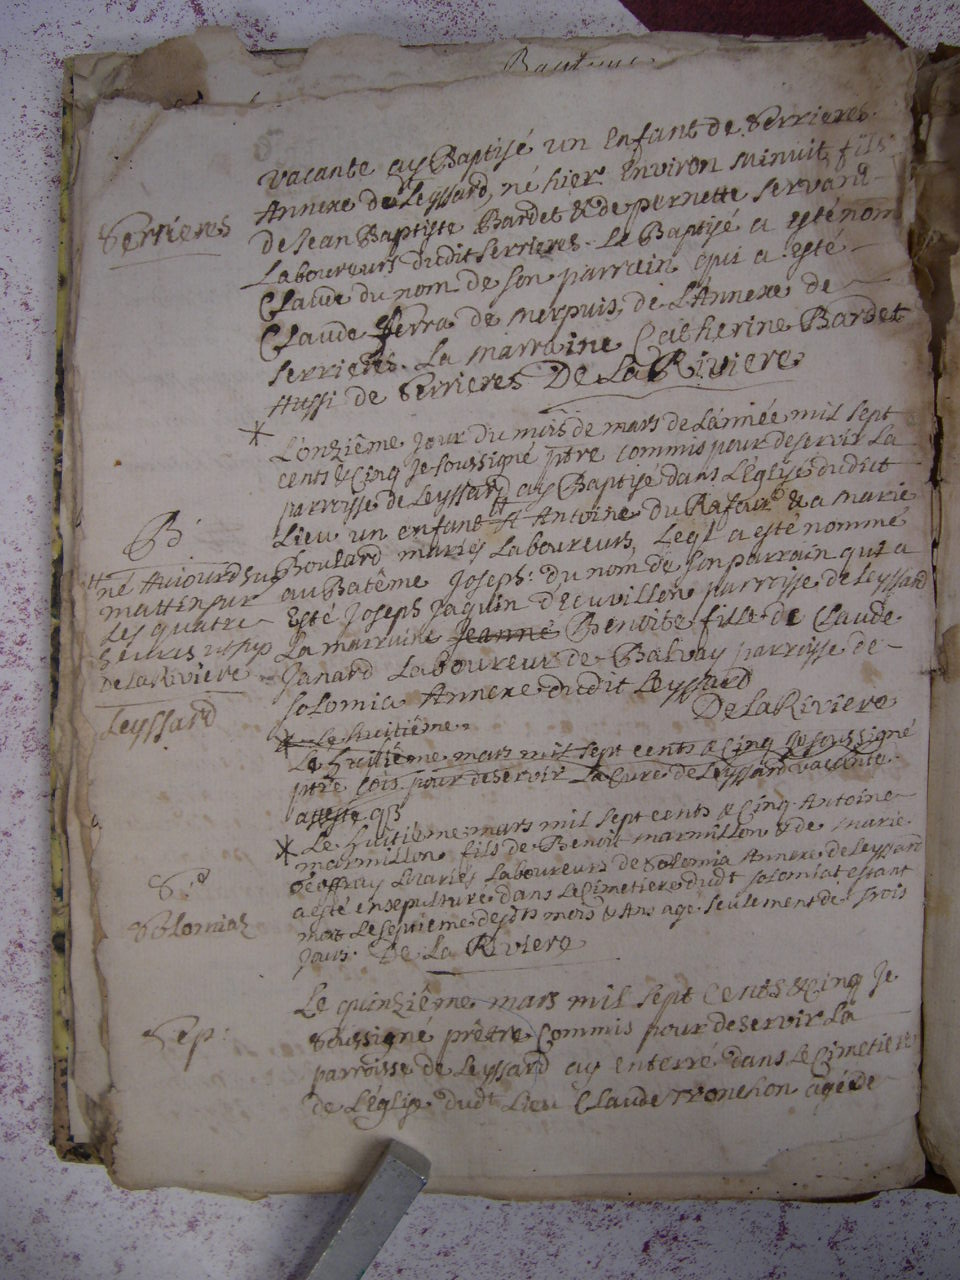 Bapteme
vacante ay Baptisé un Enfant de Serrieres
Annexe de Leyssard, né hier Environ minuit, fils
Serrieres
de Jean Baptiste Bardet & de pernette servant
Laboureurs dudit Serrieres. Le Baptisé a esté nom
Claude du nom de son parrain qui a esté
Claude ferra de merpuis, de L'Annexe de
serrieres. La marraine Catherine Bardet
Aussi de Serrieres De La Riviere
L'onzième Jour du mois de mars de L'année mil sept
cents & Cinq Je soussigné ptre commis pour deservir La
parroisse de Leyssard ay Baptisé dans L'Eglise dudict
B.
Lieu un enfant # A Antoine du Rafour & a marie
# né Aujourdhuy
Boulard mariés Laboureurs, Leql a esté nommé
mattin sur
au Batême Joseph: du nom de son parrain qui a
les quatre
Esté Joseph Jaquin d'Ecuvillon parroisse de Leyssard
heures
La marraine Jeanne Benoite fille de Claude
De la Riviere
Janard Laboureur de Balvay parroisse de
Leyssard
solomia Annexe dudit Leyssard
De La Riviere
Le huitième
Le huitième mars mil sept cents & Cinq Je soussigné
ptre cois pour deservir La Cure de Leyssard vacante
atteste q
Le huitième mars mil sept cents & Cinq Antoine
marmillon fils de Benoit marmillon & de marie
Geoffray Mariés Laboureurs de Solomia Annexe de Leyssard
S.
a esté ensepulturé dans Le Cimetiere dudt solomiat estant
Solomiaz
mort Le septieme desdts mois & An agé seulement de trois
jours. De La Riviere
Le quinzième mars mil sept Cents & Cinq Je
Sep:
Soussigné prêtre Commis pour deservir La
parroisse de Leyssard ay enterré dans Le Cimetiere
de L'église dudt Lieu Claude Tronchon agé de